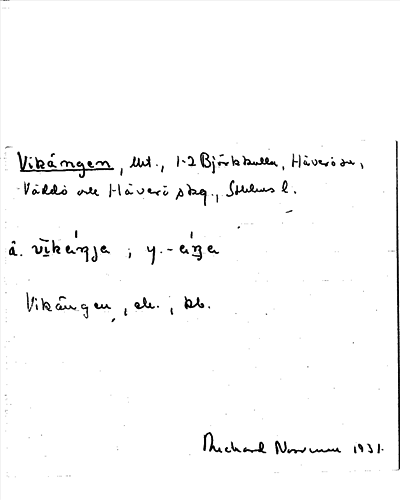 Vikängen, lht., 1-2 Björkkulla, Häverö sn,
Väddö och Häverö skg., Sthlms l.
ä. vīkáŋja ; y. -áŋa
Vikängen, ek., kb.
Richard Norrman 1931.